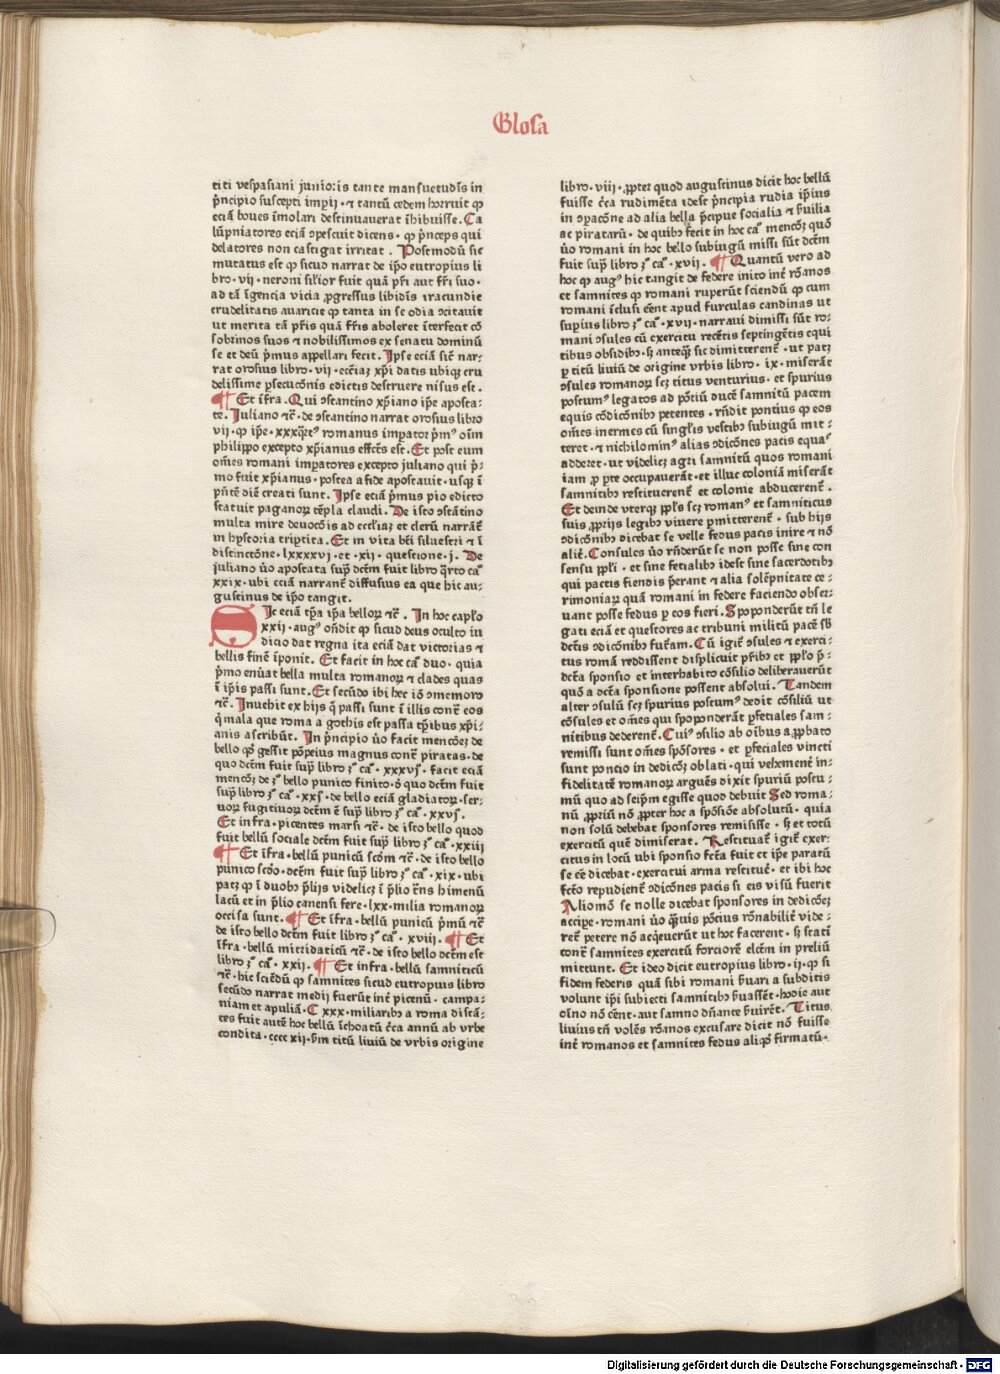 Glosa
titi vespasiani junioris tante mansuetudīs in
p̄ncipio suscepti impij · ⁊ tantū cedem horruit ꝙ
eciā boues īmolari destinauauerat īhibuisse. Ca
lūpniatores eciā ɔpescuit dicens · ꝙ p̄nceps qui
delatores non castigat irritat . Postmodū sic
mutatus est ꝙ sicud narrat de ip̄o eutropius li
bro · vij · neroni sil̄ior fuit quā pr̄i aut fr̄i suo·
ad tā īgencia vicia ꝓgressus libidīs iracundie
crudelitatis auaricie ꝙ tanta in se odia ɔcitauit
ut merita tā pr̄is quā fr̄is aboleret īterfecit cō
sobrinos suos ⁊ nobilissimos ex senatu dominū
se et deū p̄mus appellari fecit. Ipse eciā sic̄ nar-
rat orosius libro· vij · ecc̄iaȝ xp̄i datis ubiqꝫ cru
delissime ꝑsecucōnis edictis destruere nisus est .
¶ Et īfra · Qui ɔstantino xp̄iano ip̄e aposta-
te. Juliano ⁊c̄ · de ɔstantino narrat orosius libro
vij · ꝙ ip̄e · xxxqͬtꝰ romanus impator p̄mꝰ oīm
philippo excepto xp̄ianus effct̄s est. Et post eum
om̄es romani impatores excepto juliano qui p̄-
mo fuit xp̄ianus · postea a fide apostauit · usqꝫ ī
pn̄tē diē creati sunt. Ipse eciā p̄mus pio edicto
statuit paganoꝝ tēpla claudi. De isto ɔstātino
multa mire deuocōis ad eccl̄iaȝ et clerū narrāt̄
in hystoria tripͬtita. Et in vita bt̄i siluestri ⁊ ī
distinctōne · lxxxxvj · et · xij · questione · j. De
juliano ūo apostata sup̄ dc̄tm fuit libro qͬrto caͦ
xxix · ubi eciā narrant̄ diffusius ea que hic au-
gustinus de ip̄o tangit.
SIc eciā tp̄a ip̄a belloꝝ ⁊c̄ . In hoc cap̄lo
xxij · augꝰ on̄dit ꝙ sicud deus oculto iu
dicio dat regna ita eciā dat victorias ⁊
bellis finē īponit. Et facit in hoc caͦ duo · quia
p̄mo enūat bella multa romanoꝝ ⁊ clades quas
ī ip̄is passi sunt. Et secūdo ibi hec iō ɔmemoro
⁊c̄ . Inuehit ex hijs q̄ passi sunt ī illis cont̄ eos
q̄ mala que roma a gothis est passa tp̄ibus xp̄i-
anis ascribūt. In p̄ncipio ūo facit mencōeȝ de
bello qoͩ gessit pōpeius magnus cont̄ piratas · de
quo dc̄tm fuit sup̄ libro ȝͦ caͦ · xxxvj · facit eciā
mencōȝ de ȝͦ bello punico finito · d̄ quo dc̄tm fuit
sup̄ libro ȝͦ caͦ · xxj · de bello eciā gladiatoꝝ · ser-
uoꝝ fugitiuoꝝ dc̄tm ē sup̄ libro ȝͦ caͦ · xxvj .
Et infra · picentes marsi ⁊c̄ · de isto bello quod
fuit bellū sociale dc̄tm fuit sup̄ libro ȝͦ caͦ · xxiij
¶ Et īfra · bellū punicū scōm ⁊c̄ · de isto bello
punico scōo · dc̄tm fuit sup̄ libro ȝͦ caͦ · xix · ubi
patȝ ꝙ ī duobꝫ p̄lijs videlicȝ ī p̄lio c̄ns himenū
lacū et in p̄lio canensi fere · lxx · milia romanoꝝ
occisa sunt. ¶ Et īfra · bellū punicū p̄mū ⁊c̄
de isto bello dc̄tm fuit libro ȝͦ caͦ · xviij. ¶ Et
īfra · bellū mitridaticū ⁊c̄ · de isto bello dc̄tm est
libro ȝͦ caͦ · xxij. ¶ Et infra · bellū samniticū
⁊c̄ · hic sciēdū ꝙ samnites sicud eutropius libro
secūdo narrat medij fuerūt int̄ picenū · campa-
niam et apuliā · C xxx · miliaribꝫ a roma distā-
tes fuit autē hoc bellū īchoatū c̄ca annū ab vrbe
condita · cccc xij · s̄m titū liuiū de vrbis origine
libro · viij · ꝓpter quod augustinus dicit hoc bellū
fuisse c̄ca rudimēta idest p̄ncipia rudia ip̄ius
in ɔpacōne ad alia bella p̄cipue socialia ⁊ s̄uilia
ac piratarū · de quibꝫ fecit in hoc caͦ mencōȝ quō
ūo romani in hoc bello subiugū missi sūt dc̄tm
fuit sup̄ libro ȝͦ caͦ · xvij . ¶ Quantū vero ad
hoc ꝙ augꝰ hic tangit de federe inito int̄ rōanos
et samnites ꝙ romani ruperūt sciendū ꝙ cum
romani īclusi eēnt apud furculas candinas ut
supius libro ȝͦ caͦ · xvij · narraui dimissi sūt ro-
mani ɔsules cū exercitu recētis septingētis equi
tibus obsidibꝫ · sꝫ anteqͣꝫ sic dimitterent̄ · ut patȝ
ꝑ titū liuiū de origine vrbis libro · ix · miserāt
ɔsules romanoꝝ scȝ titus venturius · et spurius
postumꝰ legatos ad pōtiū ducē samnitū pacem
equis cōdicōnibꝫ petentes · rn̄dit pontius ꝙ eos
om̄es inermes cū singl̄is vestibꝫ subiugū mit-
teret · ⁊ nichilominꝰ alias ɔdicōnes pacis equas
adderet · ut videlicȝ agri samnitū quos romani
iam ꝑ ꝑte occupauerāt · et illuc coloniā miserāt
samnitibꝫ restituerent̄ et colonie abducerent̄ .
Et deinde vterqꝫ pp̄ls scȝ romanꝰ et samniticus
suis ꝓprijs legibꝫ viuere ꝑmitterent̄ · sub hijs
ɔdicōnibꝫ dicebat se velle fedus pacis inire ⁊ nō
alit̄. Consules ūo rn̄derūt se non posse sine con
sensu pp̄li · et sine fetialibꝫ idest sine sacerdotibꝫ
qui pactis fiendis p̄erant ⁊ alia solēpnitate ce-
rimoniaꝝ quā romani in federe faciendo obser-
uant posse fedus ꝑ eos fieri. Spoponderūt tn̄ le
gati eciā et questores ac tribuni militū pacē sb̄
dc̄tis ɔdicōnibꝫ fut̄am. Cū igit̄ ɔsules ⁊ exerci-
tus romā reddissent displicuit pr̄ibꝫ et pp̄lo p̄-
dc̄ta sponsio et interhabito cōsilio deliberauerūt
quō a dc̄ta sponsione possent absolui. Tandem
alter ɔsulū scȝ spurius postumꝰ dedit cōsiliū ut
cōsules et om̄es qui spoponderāt ꝑfetiales sam-
nitibus dederent̄. Cuiꝰ ɔsilio ab oībus aꝓbato
remissi sunt om̄es spōsores · et ꝑfeciales vincti
sunt poncio in dedicōȝ oblati · qui vehemēt̄ in-
fidelitatē romanoꝝ arguēs dixit spuriū postu-
mū quo ad seip̄m egisse quod debuit Sed roma-
nū ꝓpriū nō ꝓpter hoc a spōsiōe absolutū · quia
non solū debebat sponsores remisisse · sꝫ et totū
exercitū quē dimiserat. Restituat̄ igit̄ exer-
citus in locū ubi sponsio fc̄ta fuit et ip̄e paratū
se eē dicebat · exercitui arma restitue̅ · et ibi hoc
fc̄to repudient̄ ɔdicōnes pacis si eis visū fuerit
Aliomō se nolle dicebat sponsores in dedicōeȝ
accipe · romani ūo qͣuis pōcius rōnabilit̄ vide-
ret̄ petere nō acq̄euerūt ut hoc facerent · sꝫ statī
cont̄ samnites exercitū forciorē elc̄tm in preliū
mittunt. Et ideo dicit eutropius libro · ij · ꝙ si
fidem federis quā sibi romani s̄uari a subditis
volunt ip̄i subiecti samnitibꝫ s̄uassēt · hodie aut
oīno nō eēnt · aut samno dn̄ante s̄uirēt. Titus
liuius tn̄ volēs rōanos excusare dicit nō fuisse
int̄ romanos et samnites fedus aliqoͩ firmatū·
Digitalisierung gefördert durch die Deutsche Forschungsgemeinschaft - DFG